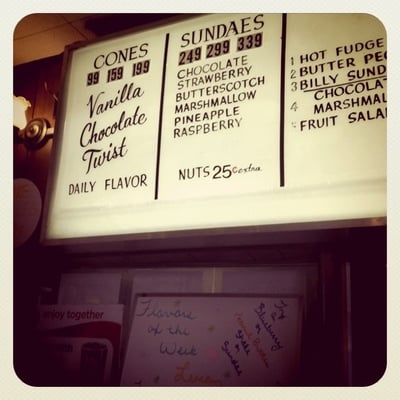 CONES
99 159 199
Vanilla
Chocolate
Twist
DAILY FLAVOR
SUNDAES
249 299 339
CHOCOLATE
STRAWBERRY
BUTTERSCOTCH
MARSHMALLOW
PINEAPPLE
RASPBERRY
NUTS 25¢ extra
1 HOT FUDGE
2 BUTTER PEC
3 BILLY SUND
CHOCOLAT
4 MARSHMAL
5 FRUIT SALA
enjoy together
Flavors
of the
Week
Try a
Blueberry
or
shake
or
Sundae